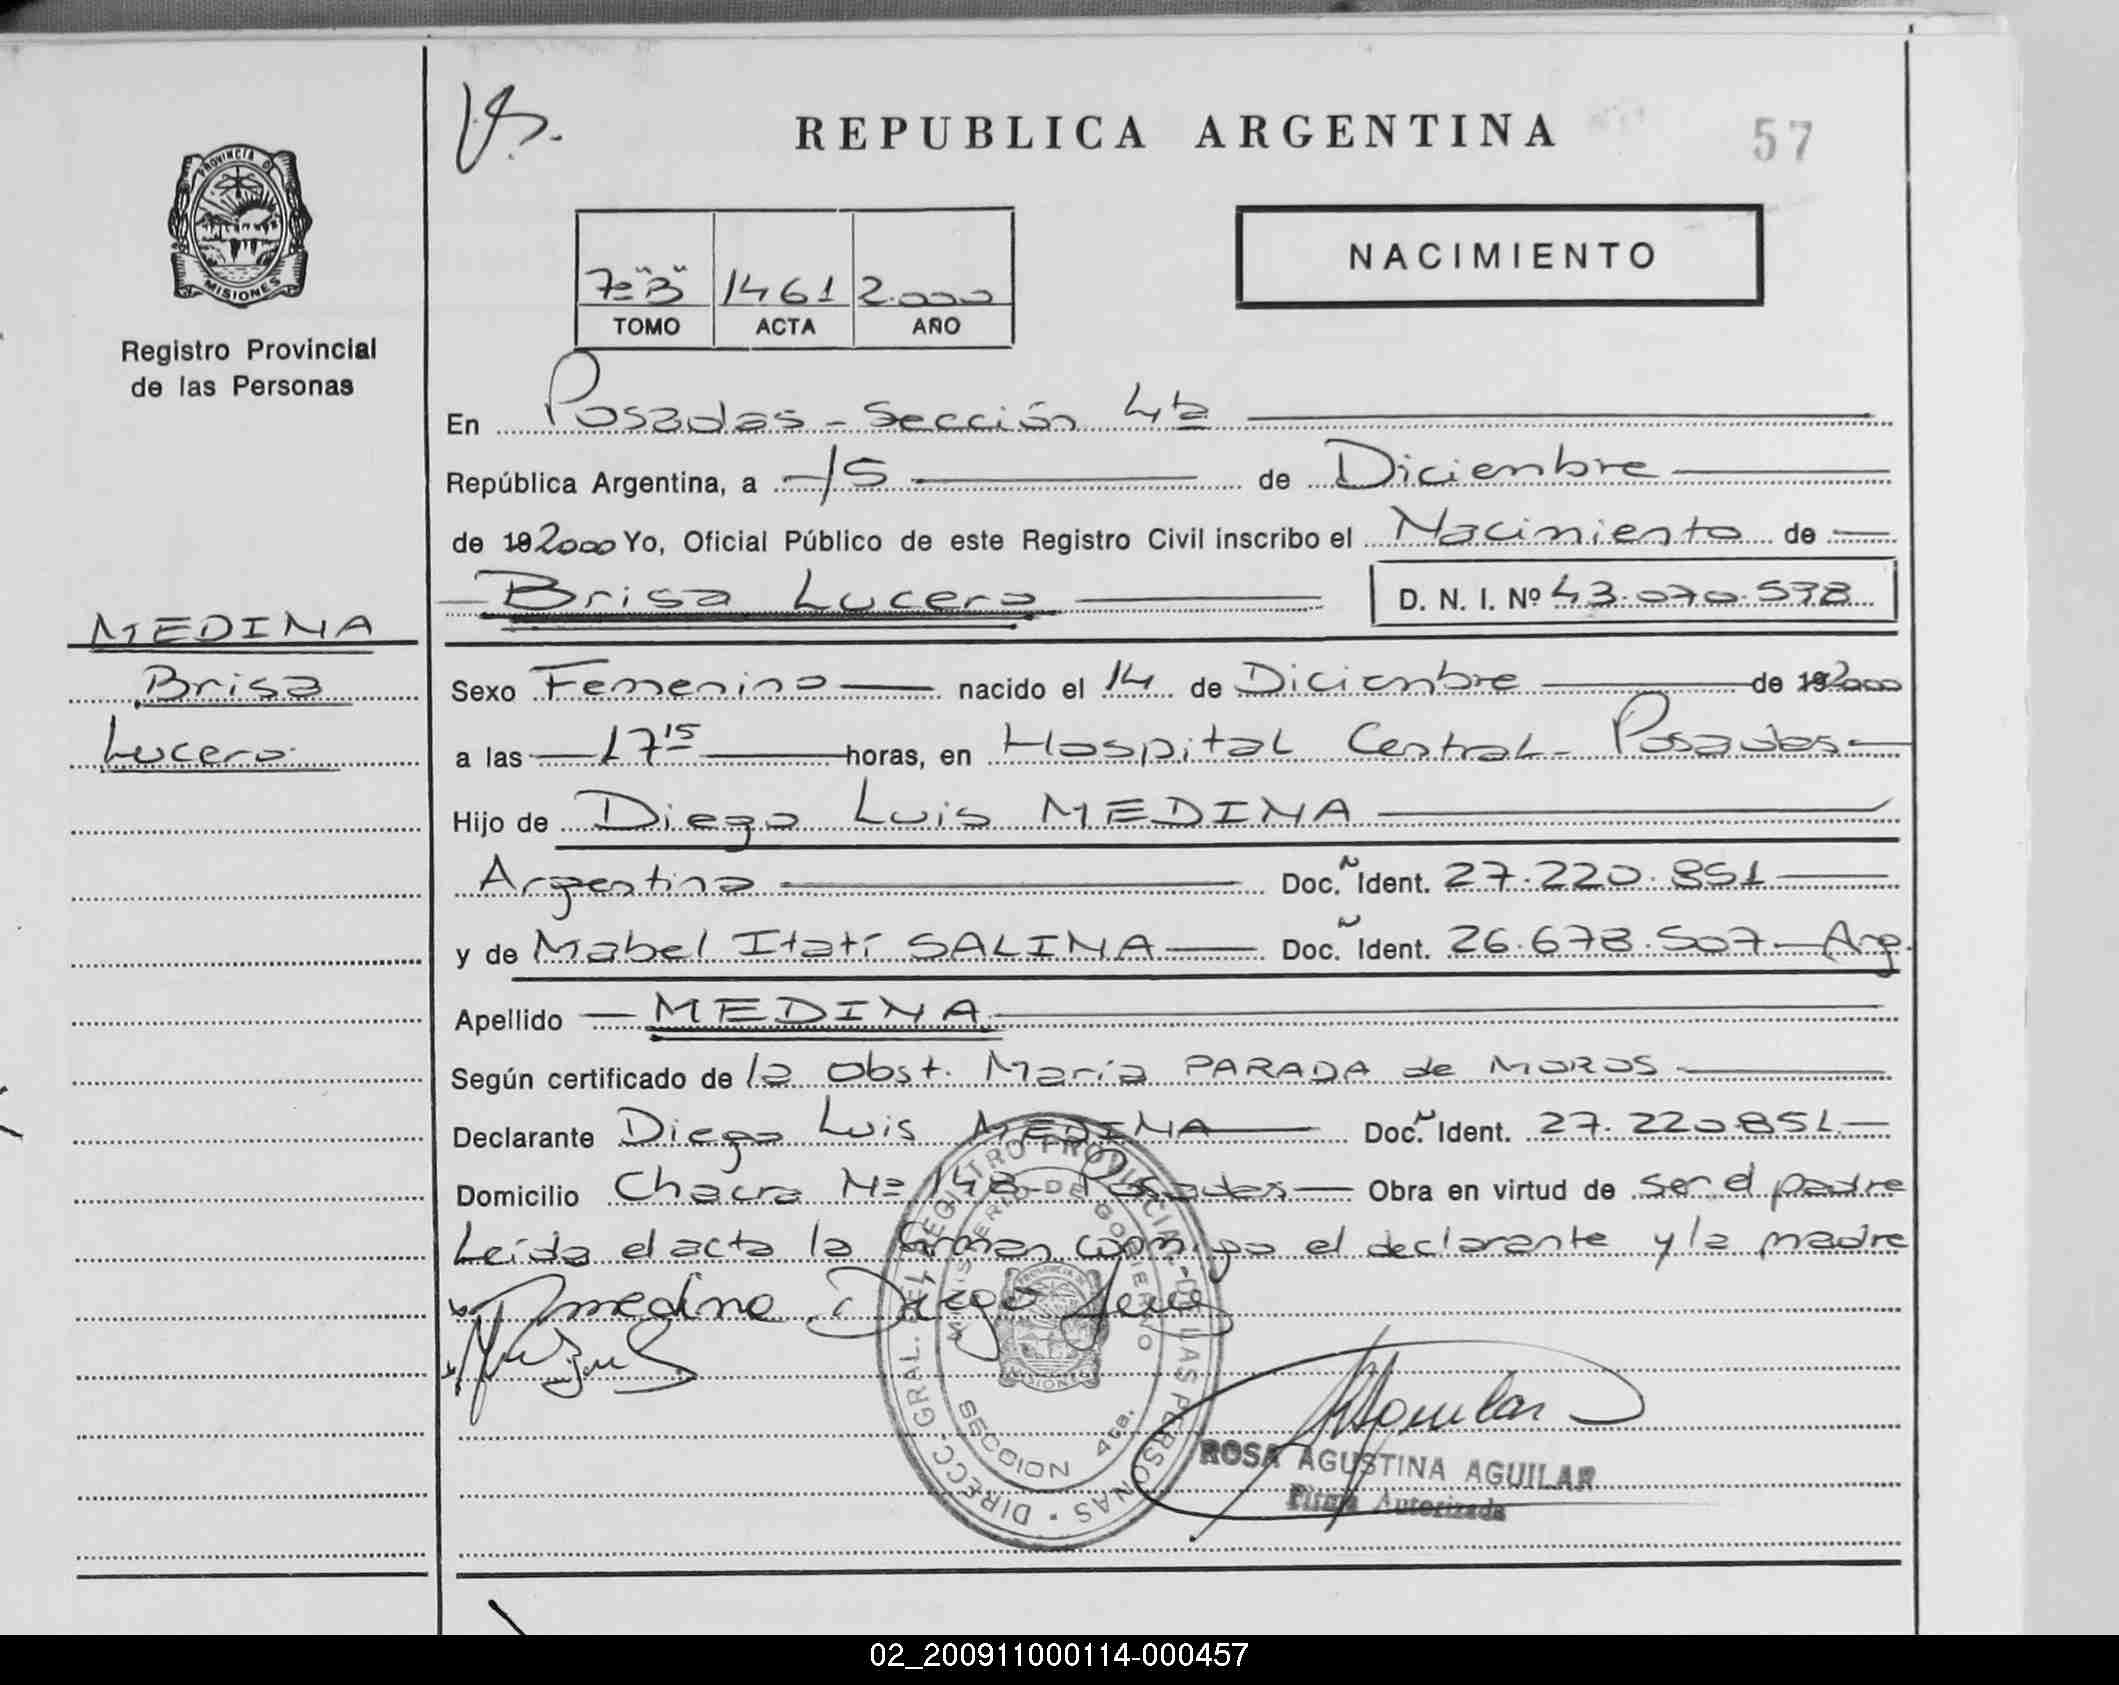 REPUBLICA ARGENTINA
57
PROVINCIA DE
MISIONES
Registro Provincial
de las Personas
7º "B" 1461 2.000
TOMO ACTA AÑO
NACIMIENTO
En Posadas - Sección 4ta
República Argentina, a 15 de Diciembre
de 19 2000 Yo, Oficial Público de este Registro Civil inscribo el Nacimiento de
Brisa Lucero D. N. I. Nº 43.070.578
MEDINA
Brisa
Lucero
Sexo Femenino nacido el 14 de Diciembre de 19 2000
a las 17 15 horas, en Hospital Central - Posadas
Hijo de Diego Luis MEDINA
Argentina Doc. Ident. 27.220.851
y de Mabel Itatí SALINA Doc. Ident. 26.678.507 - Arg.
Apellido MEDINA
Según certificado de la Obst. María PARADA de MOROS
Declarante Diego Luis MEDINA Doc. Ident. 27.220.851
Domicilio Chacra Nº 148 - Posadas Obra en virtud de ser el padre
Leída el acta la firman conmigo el declarante y la madre
medina Diego Luis
DIRECC. GRAL. DEL REGISTRO PROVINCIAL DE LAS PERSONAS
MINISTERIO DE GOBIERNO
SECCION 4ta.
Aguilar
ROSA AGUSTINA AGUILAR
Firma Autorizada
02_200911000114-000457